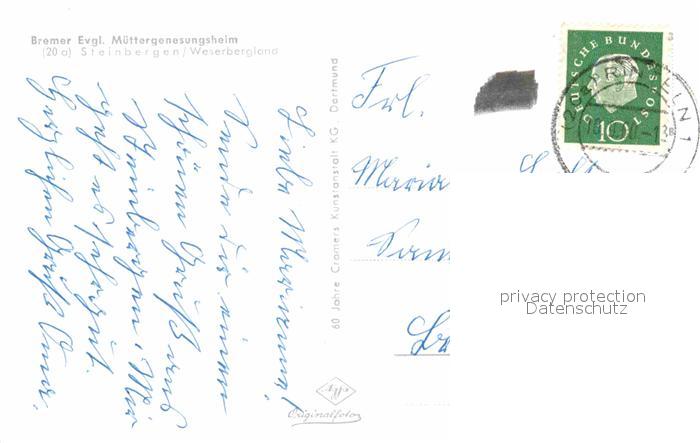 Bremer Evgl. Müttergenesungsheim
(20a) Steinbergen/Weserbergland
Liebe Marianne!
Sende Dir einen
schönen Gruß aus
Steinbergen. Mir
geht es sehr gut.
Herzlichen Gruß Oma.
60 Jahre Cramers Kunstanstalt KG, Dortmund
Agfa
Originalfoto
Frl.
Maria
DEUTSCHE BUNDESPOST
10
privacy protection
Datenschutz